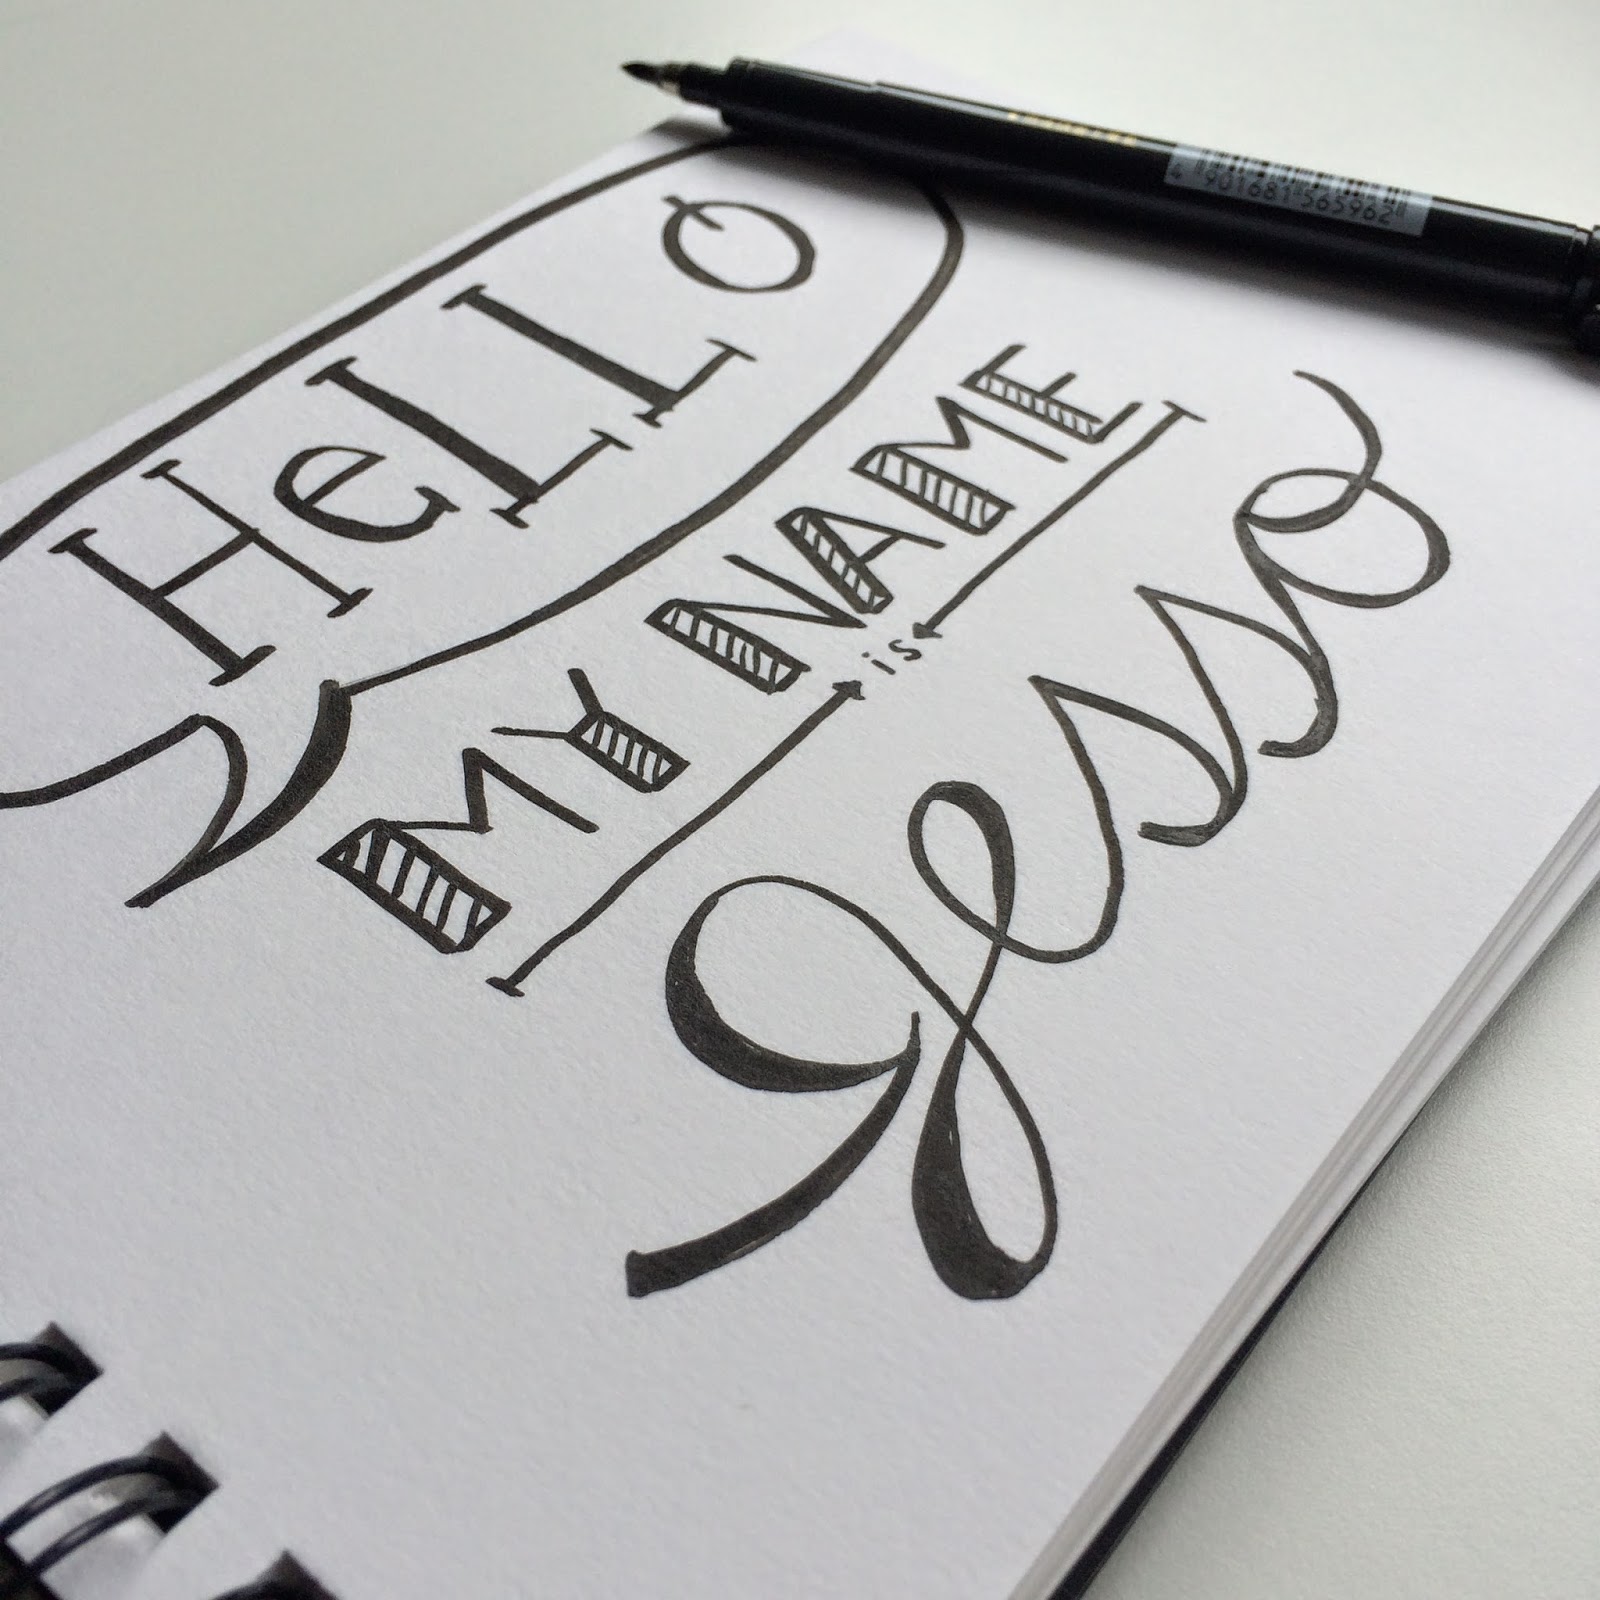 HeLLO
MY NAME
is
gesso
4 901681 565962